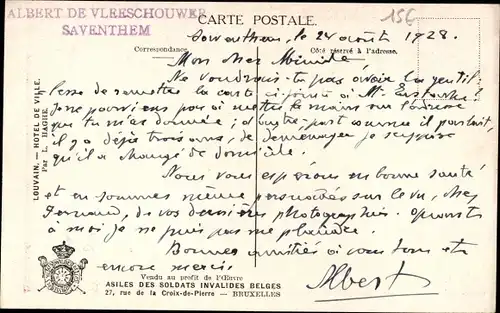 ALBERT DE VLEESCHOUWER
SAVENTHEM
CARTE POSTALE.
15€
Saventhem, le 24 août 1928.
Correspondance
Côté réservé à l'adresse.
Mon cher
Ne voudrais-tu pas avoir la gentil-
lesse de remettre la carte ci-jointe à Mr.
Je ne parviens pas à mettre la main sur l'adresse
que tu m'as donnée ; d'autre part comme il parlait,
il y a déjà trois ans, de déménager je suppose
qu'il a changé de domicile.
Nous vous espérons en bonne santé
et en sommes même persuadés sur le vu, chez
Fernand, de vos dernières photographies. Quant
à moi je ne puis pas me plaindre.
Bonnes amitiés à vous tous et
encore merci.
Albert
LOUVAIN. — HOTEL DE VILLE.
Par L. HAGHE.
Vendu au profit de l'Œuvre
ASILES DES SOLDATS INVALIDES BELGES
27, rue de la Croix-de-Pierre — BRUXELLES